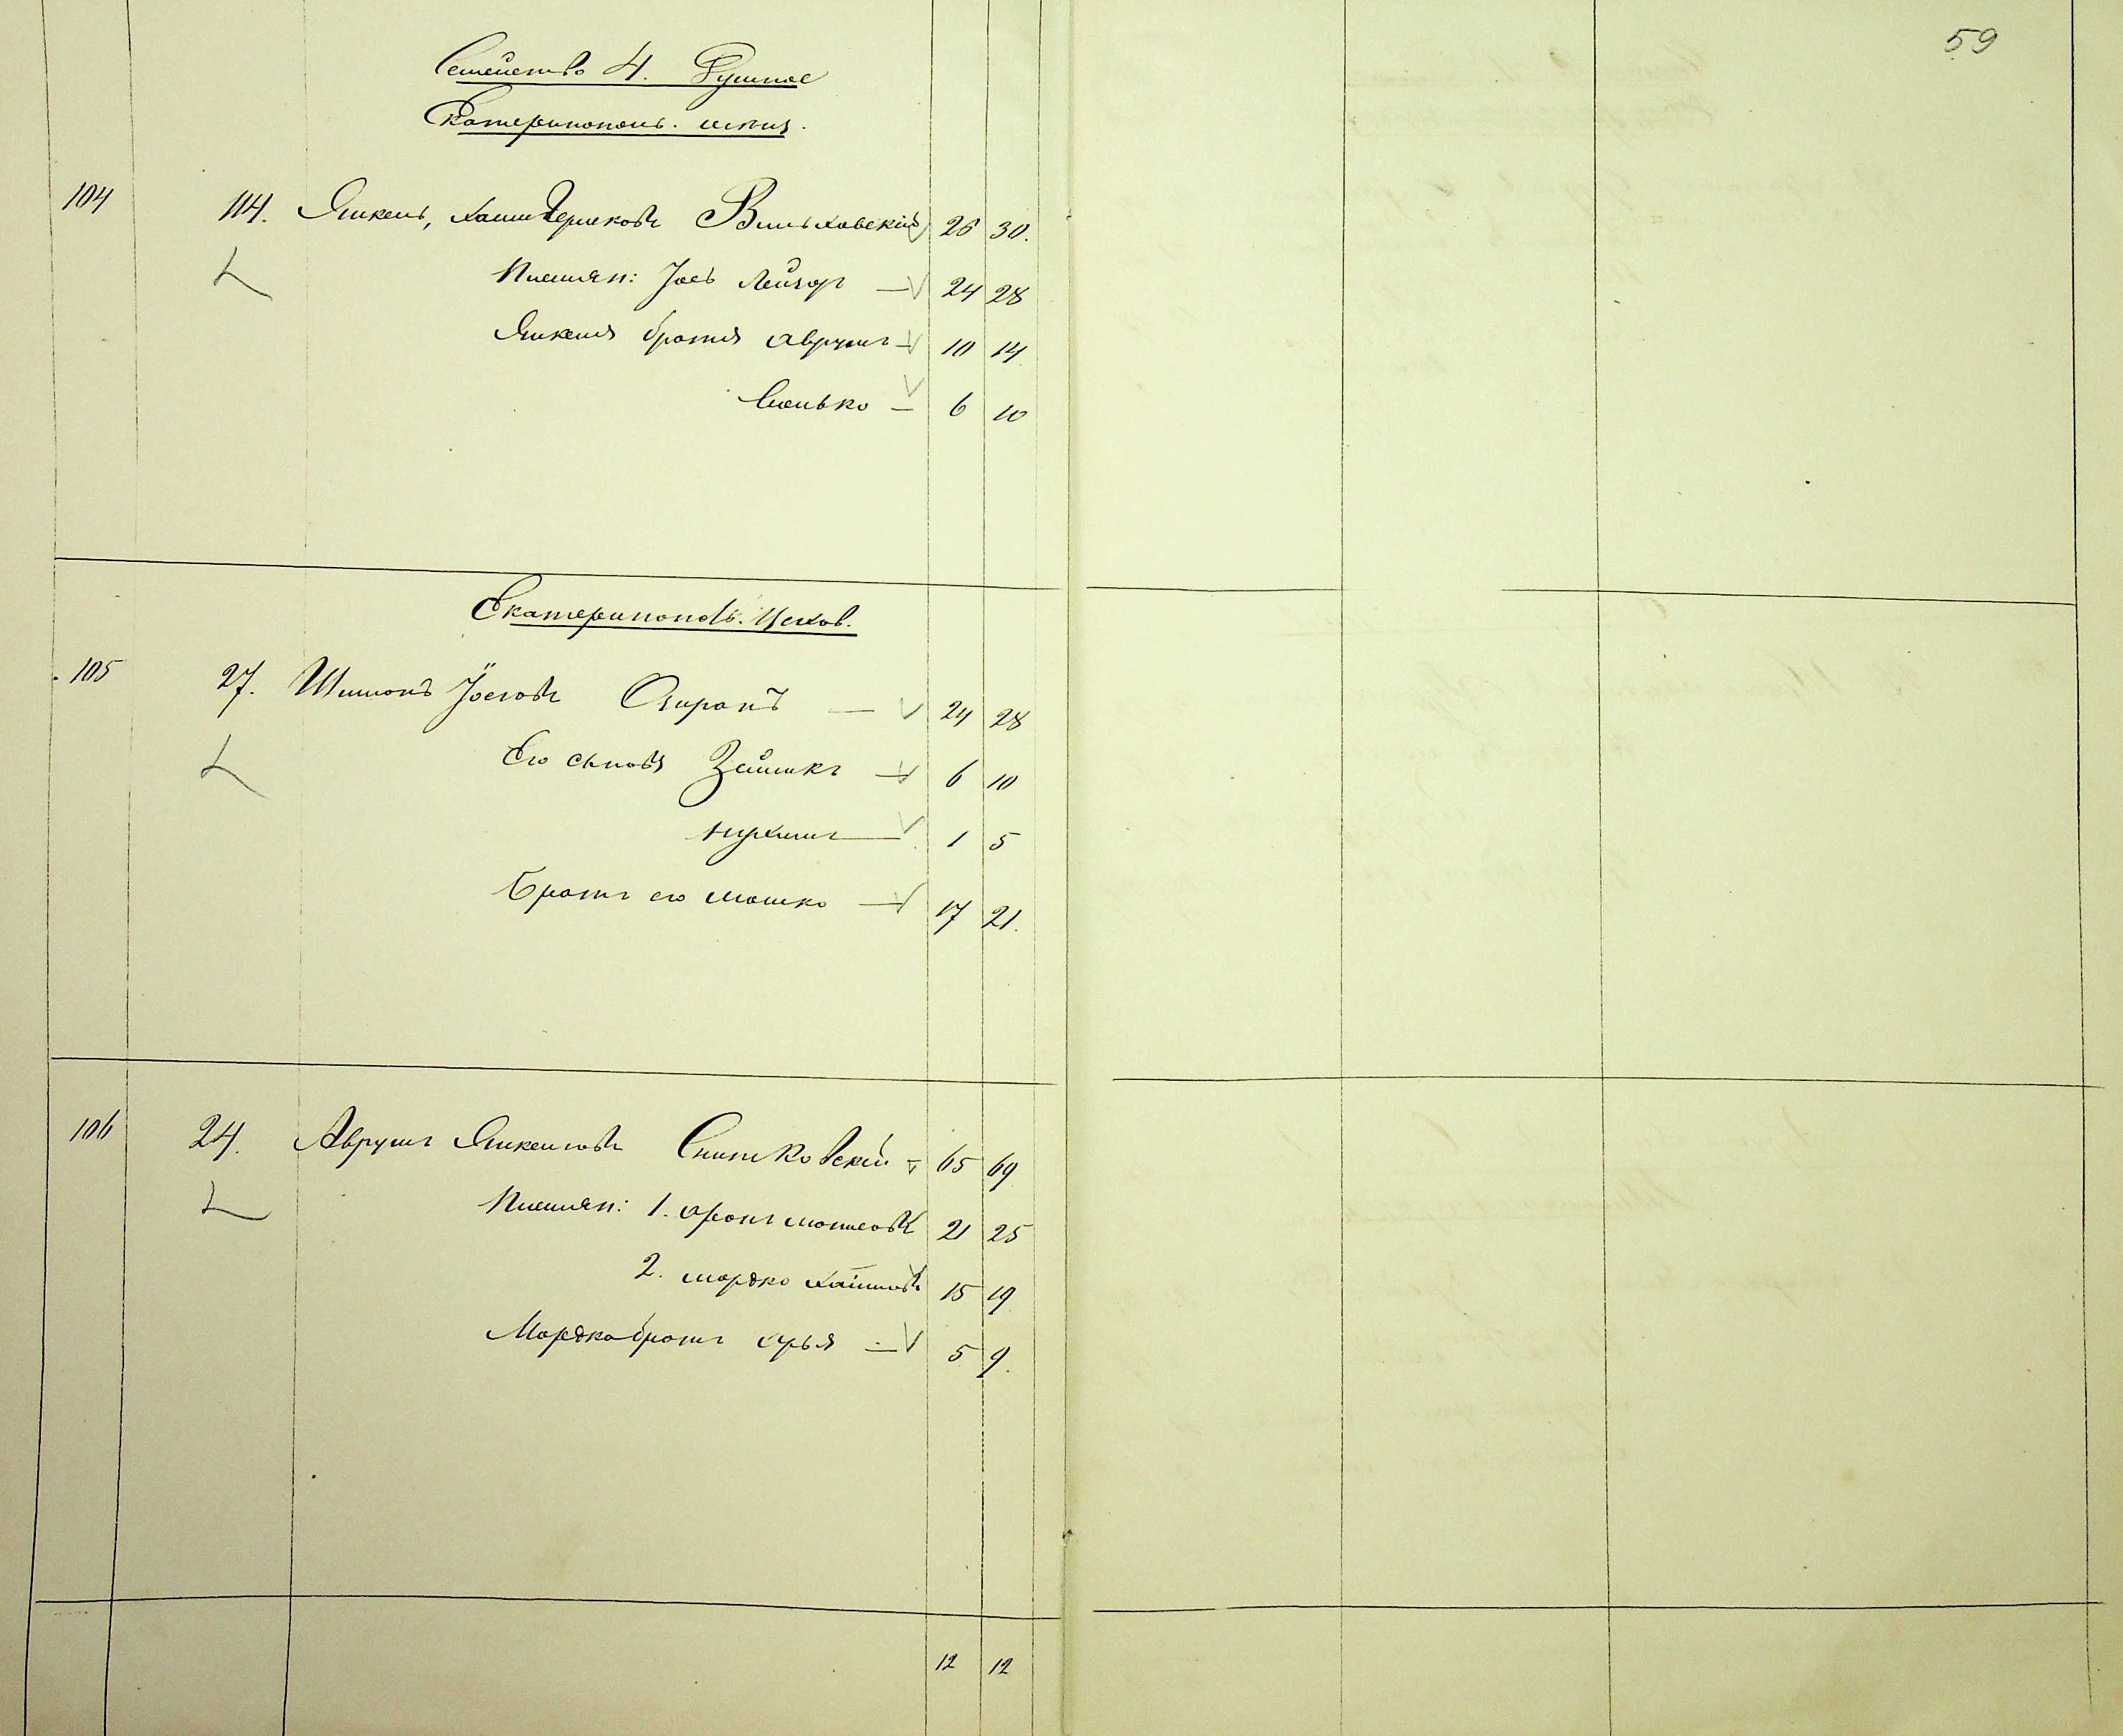 59
Семейство 4. Душное
Екатеринополь. мѣщ.
104 114. Янкель, Хаим Гершковъ Вильховскій 26 30.
Племян: Іось Лейзоръ — 24 28
Янкеля братья Аврумъ — 10 14
Сюнько — 6 10
Екатеринополь. Исков.
105 27. Шимонъ Іосіовъ — 24 28
Его сыновья Зейликъ — 6 10
Нухимъ — 1 5
Братъ его Мошко — 17 21.
106 24. Аврумъ Янкеліовъ Снитковскій 65 69
Племян: 1. Аронъ 21 25
2. Мордко Хаимовъ 15 19
Мордка братъ Сурья — 5 9.
12 12